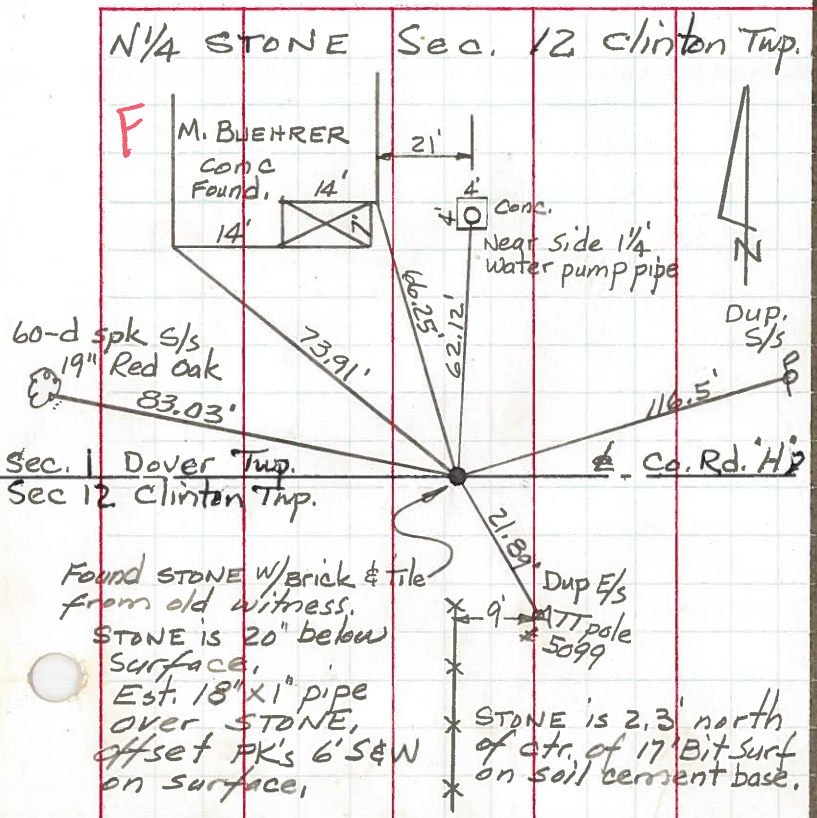 N 1/4 STONE Sec. 12 Clinton Twp.
F
M. BUEHRER
Conc
Found.
14'
14'
7'
21'
4'
4'
Conc.
Near Side 1 1/4"
Water pump pipe
N
60-d spk S/s
19" Red Oak
83.03'
73.91'
66.25'
62.12'
116.5'
Dup.
S/s
Sec. 1 Dover Twp.
Sec 12 Clinton Twp.
℄ Co. Rd. "H"
21.89'
Found STONE w/Brick & Tile
from old witness.
STONE is 20" below
Surface.
Est. 18" x 1" pipe
over STONE,
offset PK's 6' S & W
on surface.
Dup E/s
TT pole
# 5099
9'
STONE is 2.3' north
of ctr. of 17' Bit Surf
on soil cement base.